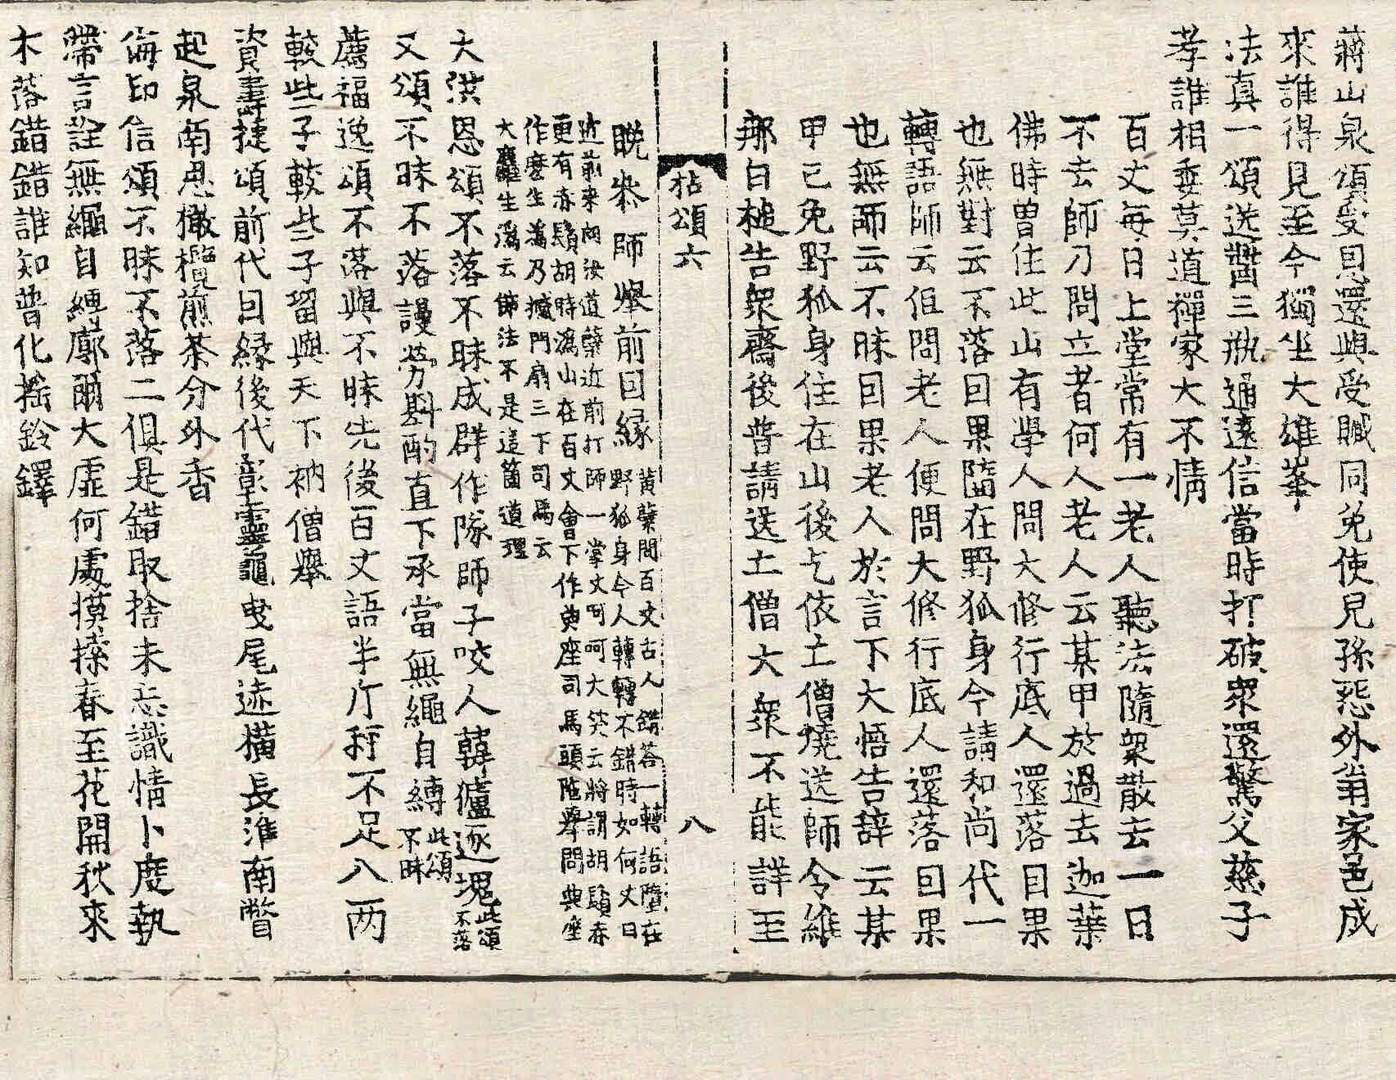 蔣山泉頌受因還與受贓同免使兒孫惡外甫家邑成
來誰得見至今獨坐大雄峯
法真一頌送醬三瓶通遠信當時打破衆還驚父慈子
孝誰相委莫道禪家大不情
百丈每日上堂常有一老人聽法隨衆散去一日
不去師乃問立者何人老人云某甲於過去迦葉
佛時曾住此山有學人問大修行底人還落因果
也無對云不落因果墮在野狐身今請和尚代一
轉語師云但問老人便問大修行底人還落因果
也無師云不昧因果老人於言下大悟告辞云某
甲已免野狐身住在山後乞依亡僧燒送師令維
那白槌告衆齋後普請送亡僧大衆不能詳至
拈頌六 八
晩叅師擧前因縁黄蘗問百丈古人錯荅一轉語墮在
野狐身今人轉轉不錯時如何丈曰
近前来向汝道蘗近前打師一掌丈呵呵大笑云將謂胡鬚赤
更有赤鬚胡時潙山在百丈會下作典座司馬頭陁擧問典座
作麽生潙乃撼門扇三下司馬云
大麤生潙云佛法不是這箇道理
大洪恩頌不落不昧成群作隊師子咬人韓獹逐塊此頌不落
又頌不昧不落謾勞斟酌直下承當無繩自縛此頌不昧
薦福逸頌不落與不昧先後百丈語半斤秤不足八两
較些子較些子留與天下衲僧擧
資壽捷頌前代因縁後代彰靈龜曳尾迹橫長淮南瞥
起泉南思橄欖煎茶分外香
海印信頌不昧不落二俱是錯取捨未忘識情卜度執
滯言詮無繩自纏廓爾大虛何處摸𢱢春至花開秋來
木落錯錯誰知普化摇鈴鐸